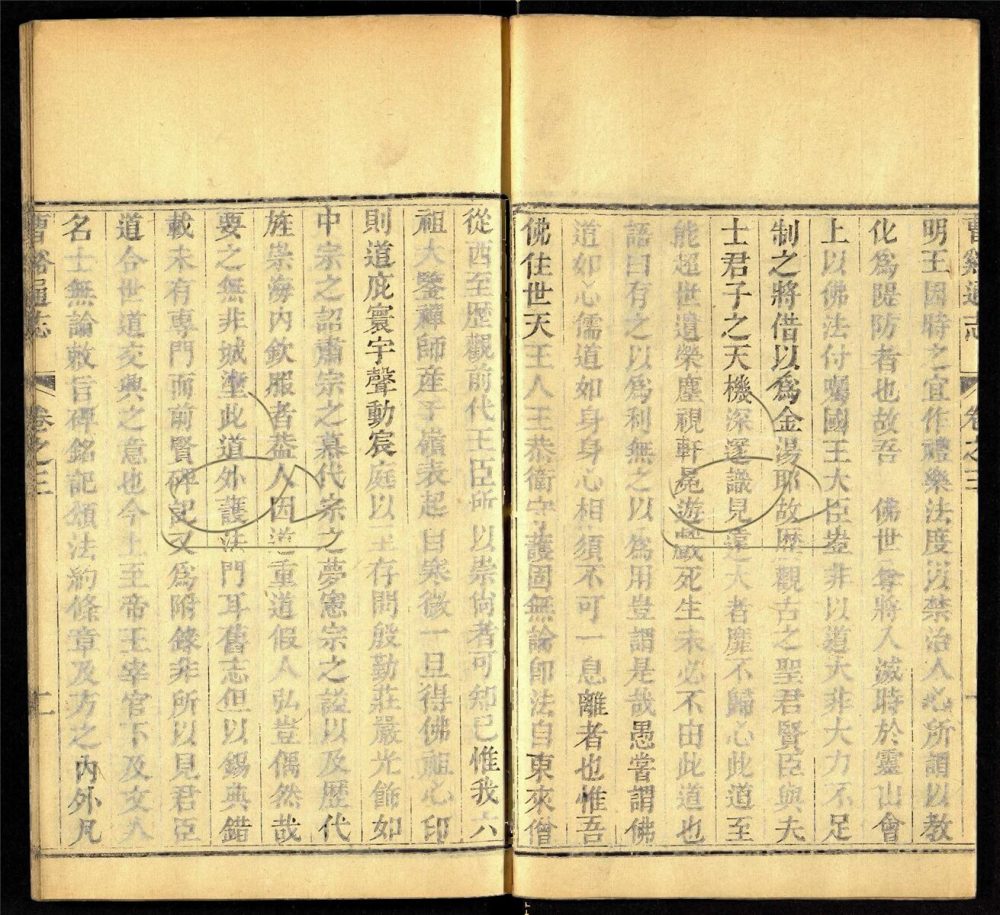 曹谿通志 卷之三 十
明王因時之宜作禮樂法度以禁治人心所謂以教
化為隄防者也故吾 佛世尊將入滅時於靈山會
上以佛法付囑國王大臣豈非以道大非大力不足
制之將借以為金湯耶故歷觀古之聖君賢臣與夫
士君子之天機深邃識見遠大者靡不歸心此道至
能超世遺榮塵視軒冕遊戲死生未必不由此道也
語曰有之以為利無之以為用豈謂是哉愚嘗謂佛
道如心儒道如身身心相須不可一息離者也惟吾
佛住世天王人王恭衛守護固無論即法自東來僧
從西至歷觀前代王臣所以崇尚者可知已惟我六
祖大鑒禪師產于嶺表起自寒微一旦得佛祖心印
則道庇寰宇聲動宸庭以王存問殷勤莊嚴光飾如
中宗之詔肅宗之慕代宗之夢憲宗之諡以及歷代
旌崇海內欽服者葢人因道重道假人弘豈偶然哉
要之無非城塹此道外護法門耳舊志但以錫典錯
載未有專門而前賢碑記又為附錄非所以見君臣
道合世道交興之意也今上至帝王宰官下及文人
名士無論敕言碑銘記頌法約條章及方之內外凡
曹谿通志 卷之三 十一